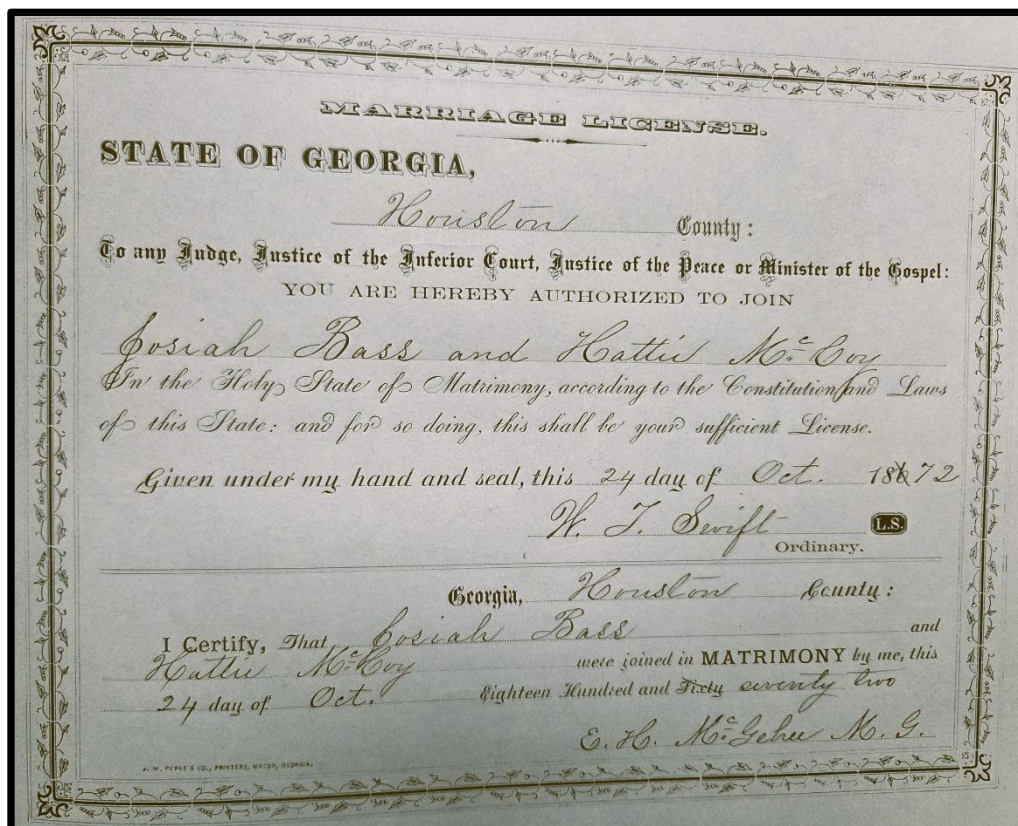 MARRIAGE LICENSE.
STATE OF GEORGIA,
Houston County:
To any Judge, Justice of the Inferior Court, Justice of the Peace or Minister of the Gospel:
YOU ARE HEREBY AUTHORIZED TO JOIN
Josiah Bass and Hattie Mc Coy
In the Holy State of Matrimony, according to the Constitution and Laws
of this State: and for so doing, this shall be your sufficient License.
Given under my hand and seal, this 24 day of Oct. 18672
W. T. Swift L.S.
Ordinary.
Georgia, Houston County:
I Certify, That Josiah Bass and
Hattie Mc Coy were joined in MATRIMONY by me, this
24 day of Oct. Eighteen Hundred and Sixty seventy two
E. H. Mc Gehee M. G.
J. W. & CO., PRINTERS, MACON, GEORGIA.